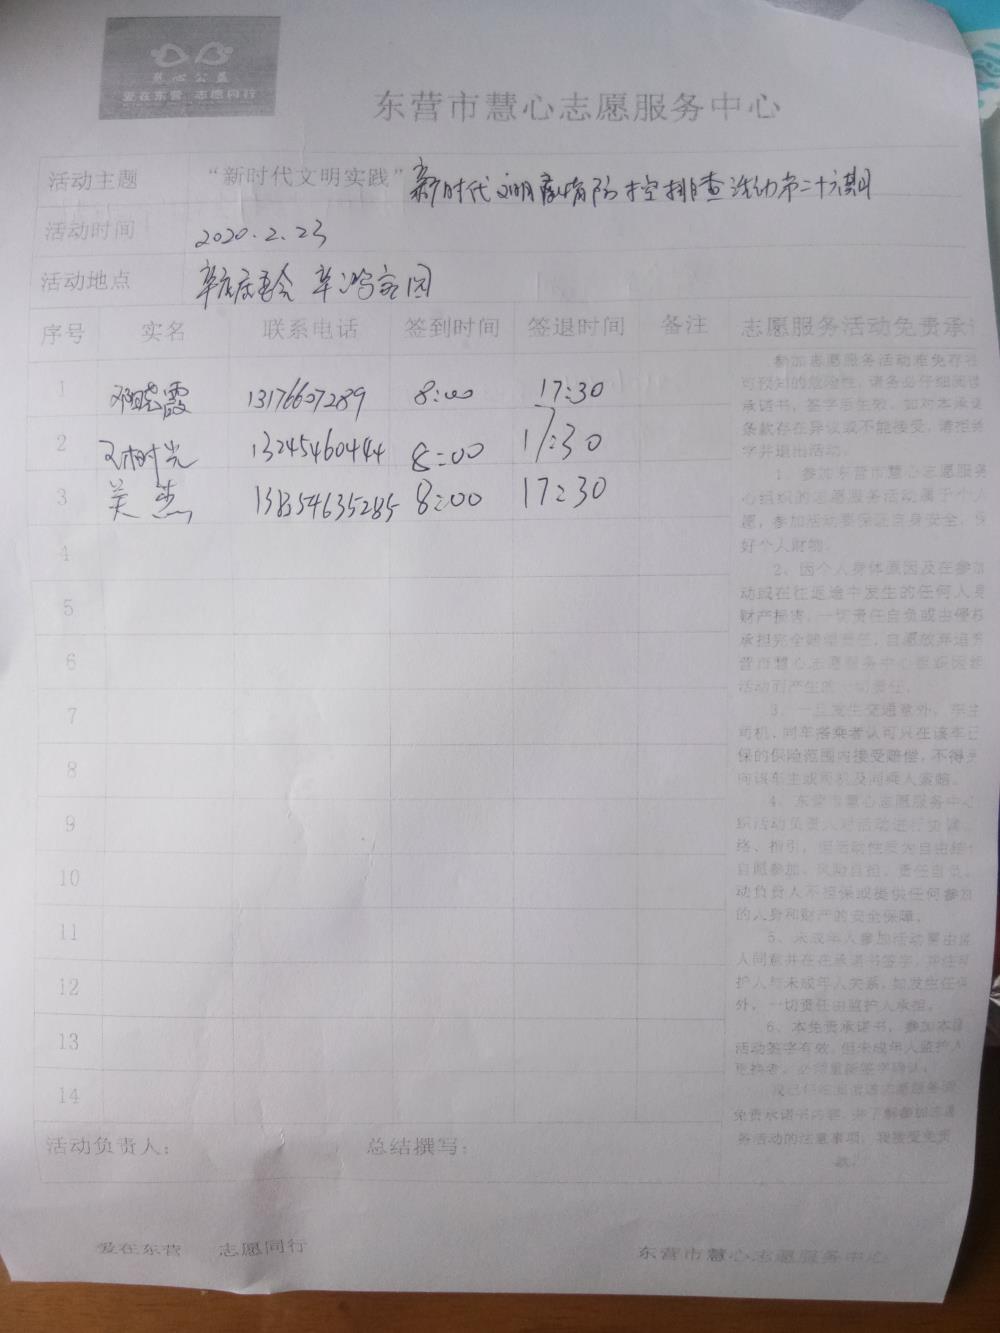 慧心公益
爱在东营 志愿同行
东营市慧心志愿服务中心
活动主题 “新时代文明实践” 新时代文明疫情防控排查活动第二十六期
活动时间 2020.2.23
活动地点
序号 实名 联系电话 签到时间 签退时间 备注 志愿服务活动免责承
1 邓晓霞 13176607289 8:00 17:30
2 王树光 13245460444 8:00 17:30
3 关杰 8:00 17:30
4
5
6
7
8
9
10
11
12
13
14
参加志愿服务活动难免存在
可预知的危险性，请务必仔细阅读
承诺书，签字后生效。如对本承诺
条款存在异议或不能接受，请拒绝
字并退出活动。
1、参加东营市慧心志愿服务
心组织的志愿服务活动属于个人
愿，参加活动要保证自身安全，保
好个人财物。
2、因个人身体原因及在参加
动或在往返途中发生的任何人身
财产损害，一切责任自负或由侵权
承担完全赔偿责任，自愿放弃追究
营市慧心志愿服务中心
活动而产生的一切责任。
3、一旦发生交通意外，车主
司机、同车搭乘者认可只在该车已
保的保险范围内接受赔偿，不得
向该车主或司机及同乘人索赔。
4、东营市慧心志愿服务中心
织活动负责人对活动进行协调、
络、指引，但活动性质为自由结
自愿参加、风险自担、责任自负。
动负责人不担保或提供任何参加
的人身和财产的安全保障。
5、未成年人参加活动要由监
人同意并在在承诺书签字，并注明
护人与未成年人关系，如发生任何
外，一切责任由监护人承担。
6、本免责承诺书，参加本
活动签字有效，但未成年人监护人
更换者，必须重新签字确认。
我已仔细阅读志愿服务活
免责承诺书内容，并了解参加志愿
务活动的注意事项，我接受免责
款。
活动负责人： 总结撰写：
爱在东营 志愿同行 东营市慧心志愿服务中心